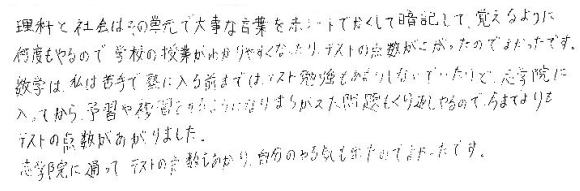 理科と社会はその単元で大事な言葉を赤シートでかくして暗記して、覚えるように
何度もやるので学校の授業がわかりやすくなったり、テストの点数が上がったのでよかったです。
数学は、私は苦手で塾に入る前までは、テスト勉強もあまりしないでいたけど、志学院に
入ってから、予習や復習をするようになりまちがえた問題もくり返しやるので、今までよりも
テストの点数があがりました。
志学院に通ってテストの点数もあがり、自分のやる気も出たのでよかったです。